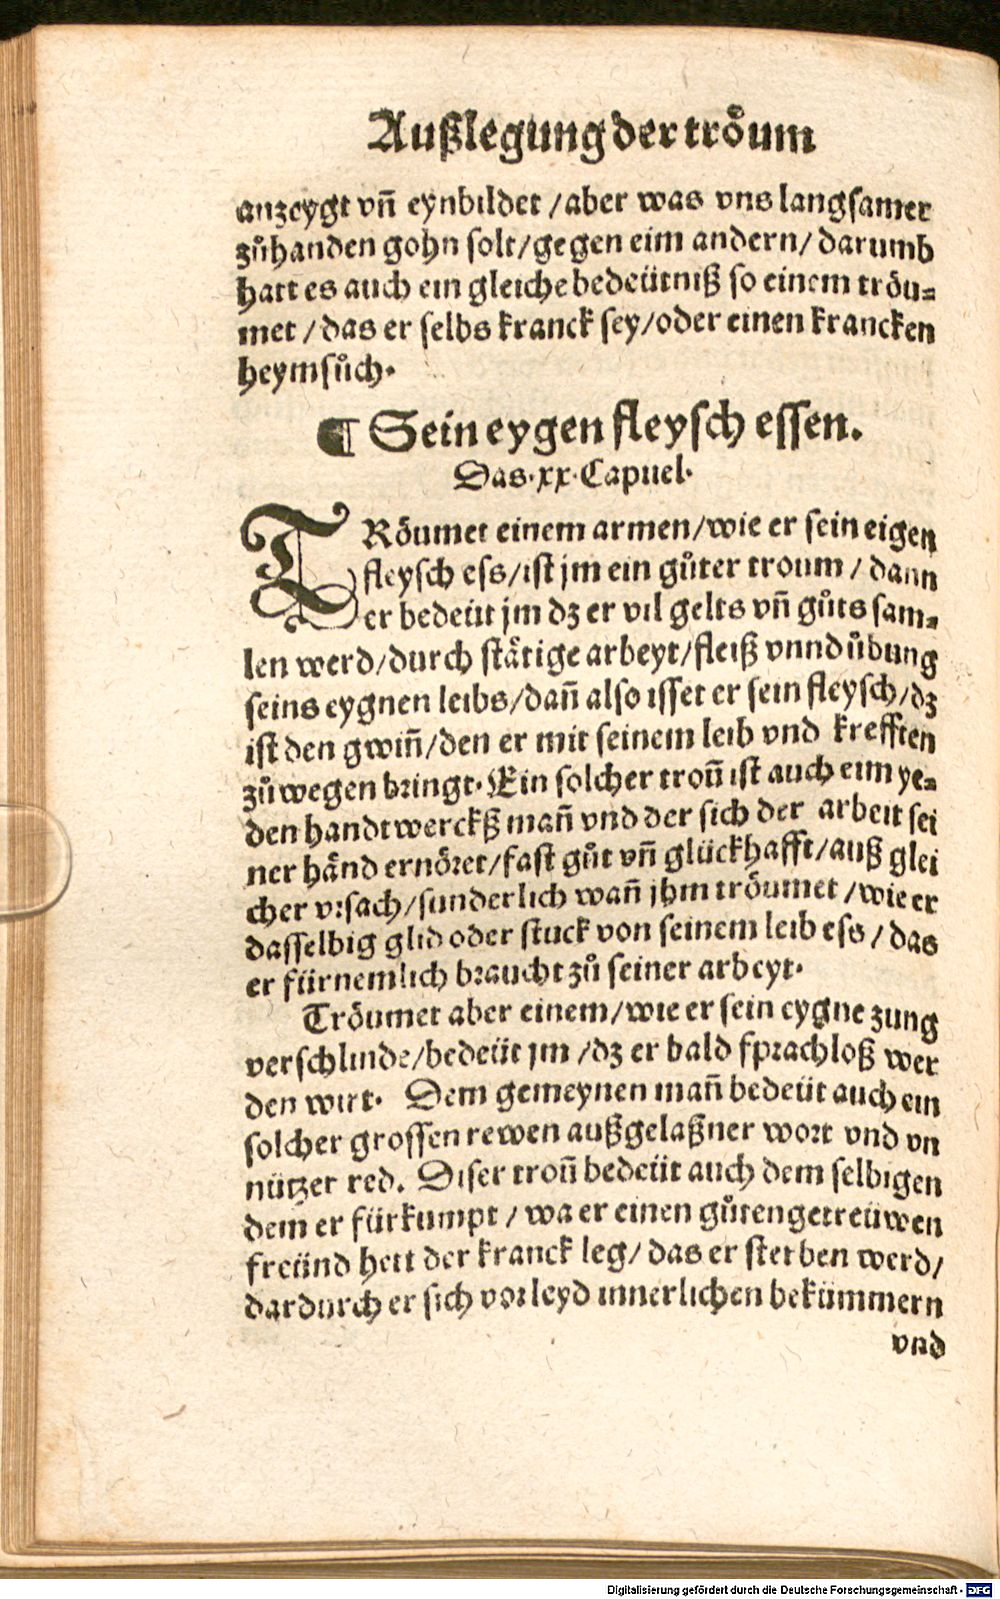 Außlegung der troͤum
anzeygt vñ eynbildet /aber was vns langsamer
zuͦhanden gohn solt/gegen eim andern/ darumb
hatt es auch ein gleiche bedeütniß so einem tröu⸗
met /das er selbs kranck sey/oder einen krancken
heymsuͦch.
¶ Sein eygen fleysch essen.
Das.xx.Capitel.
TRöumet einem armen/wie er sein eigen
fleysch ess/ist jm ein guͦter troum / dann
er bedeüt jm dz er vil gelts vñ guͦts sam⸗
len werd/durch stätige arbeyt/fleiß vnnd uͤbung
seins eygnen leibs/dañ also isset er sein fleysch/dz
ist den gwiñ/den er mit seinem leib vnd krefften
zuͦwegen bringt. Ein solcher troũ ist auch eim ye⸗
den handtwerckß mañ vnd der sich der arbeit sei
ner händ ernöret/fast guͦt vñ glückhafft/auß glei
cher vrsach/sunderlich wañ jhm tröumet /wie er
dasselbig glid oder stuck von seinem leib ess / das
er fürnemlich braucht zuͦ seiner arbeyt.
Tröumet aber einem/wie er sein eygne zung
verschlinde/bedeüt jm /dz er bald sprachloß wer
den wirt. Dem gemeynen mañ bedeüt auch ein
solcher grossen rewen außgelaßner wort vnd vn
nützer red. Diser troũ bedeüt auch dem selbigen
dem er fürkumpt / wa er einen guͦten getreüwen
freünd hett der kranck leg/ das er sterben werd/
dardurch er sich vor leyd innerlichen bekümmern
vnd
Digitalisierung gefördert durch die Deutsche Forschungsgemeinschaft - DFG